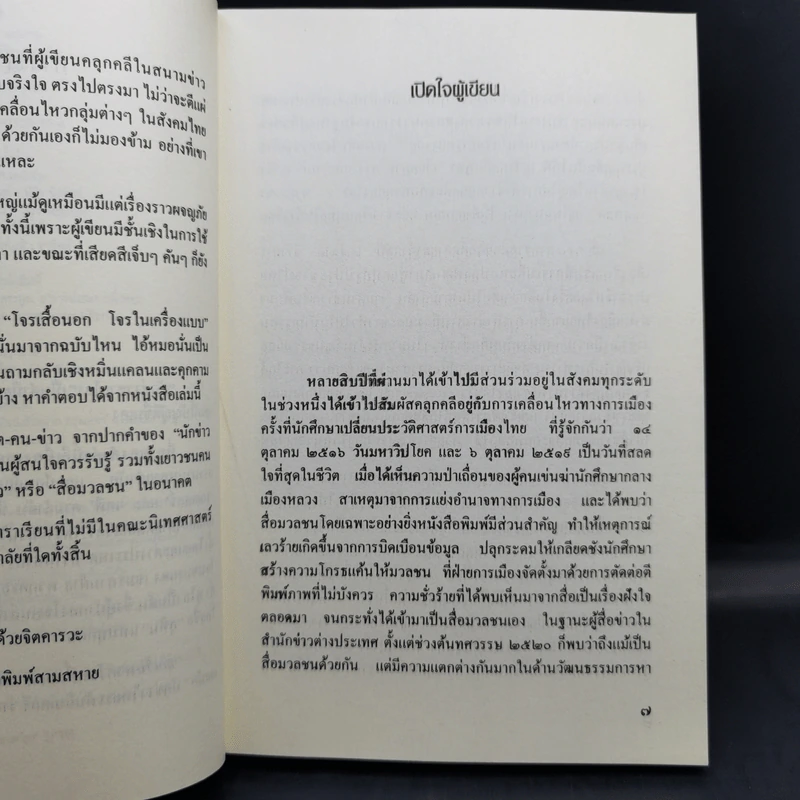 ชนที่ผู้เขียนคลุกคลีในสนามข่าว
บจริงใจ ตรงไปตรงมา ไม่ว่าจะตีแผ่
คลื่อนไหวกลุ่มต่างๆ ในสังคมไทย
ด้วยกันเองก็ไม่มองข้าม อย่างที่เขา
แหละ
หญ่แม้ดูเหมือนมีแต่เรื่องราวผจญภัย
ทั้งนี้เพราะผู้เขียนมีชั้นเชิงในการใช้
า และขณะที่เสียดสีเจ็บๆ คันๆ ก็ยัง
“โจรเสื้อนอก โจรในเครื่องแบบ”
นั่นมาจากฉบับไหน ไอ้หมอนั่นเป็น
นถามกลับเชิงหมิ่นแคลนและคุกคาม
ข้าง หาคำตอบได้จากหนังสือเล่มนี้
ต-คน-ข่าว จากปากคำของ “นักข่าว
นผู้สนใจควรรับรู้ รวมทั้งเยาวชนคน
ว” หรือ “สื่อมวลชน” ในอนาคต
ราเรียนที่ไม่มีในคณะนิเทศศาสตร์
าลัยที่ใดทั้งสิ้น
ด้วยจิตคารวะ
พิมพ์สามสหาย
เปิดใจผู้เขียน
หลายสิบปีที่ผ่านมาได้เข้าไปมีส่วนร่วมอยู่ในสังคมทุกระดับ
ในช่วงหนึ่งได้เข้าไปสัมผัสคลุกคลีอยู่กับการเคลื่อนไหวทางการเมือง
ครั้งที่นักศึกษาเปลี่ยนประวัติศาสตร์การเมืองไทย ที่รู้จักกันว่า ๑๔
ตุลาคม ๒๕๑๖ วันมหาวิปโยค และ ๖ ตุลาคม ๒๕๑๙ เป็นวันที่สลด
ใจที่สุดในชีวิต เมื่อได้เห็นความป่าเถื่อนของผู้คนเข่นฆ่านักศึกษากลาง
เมืองหลวง สาเหตุมาจากการแย่งอำนาจทางการเมือง และได้พบว่า
สื่อมวลชนโดยเฉพาะอย่างยิ่งหนังสือพิมพ์มีส่วนสำคัญ ทำให้เหตุการณ์
เลวร้ายเกิดขึ้นจากการบิดเบือนข้อมูล ปลุกระดมให้เกลียดชังนักศึกษา
สร้างความโกรธแค้นให้มวลชน ที่ฝ่ายการเมืองจัดตั้งมาด้วยการตัดต่อตี
พิมพ์ภาพที่ไม่บังควร ความชั่วร้ายที่ได้พบเห็นมาจากสื่อเป็นเรื่องฝังใจ
ตลอดมา จนกระทั่งได้เข้ามาเป็นสื่อมวลชนเอง ในฐานะผู้สื่อข่าวใน
สำนักข่าวต่างประเทศ ตั้งแต่ช่วงต้นทศวรรษ ๒๕๒๐ ก็พบว่าถึงแม้เป็น
สื่อมวลชนด้วยกัน แต่มีความแตกต่างกันมากในด้านวัฒนธรรมการหา
๗